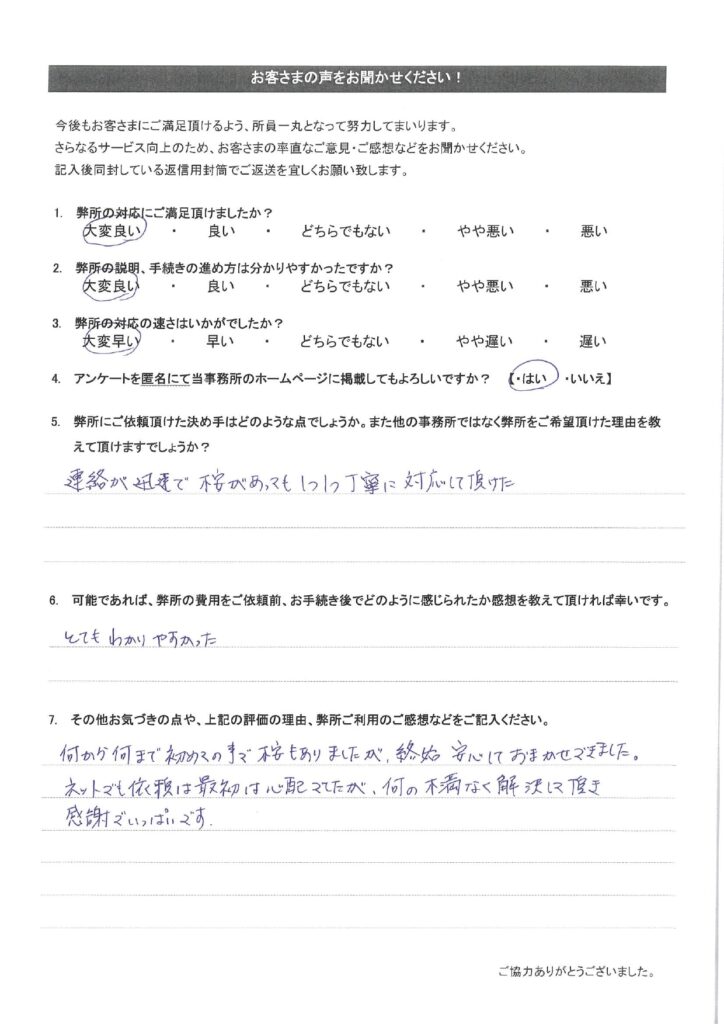 お客さまの声をお聞かせください！
今後もお客さまにご満足頂けるよう、所員一丸となって努力してまいります。
さらなるサービス向上のため、お客さまの率直なご意見・ご感想などをお聞かせください。
記入後同封している返信用封筒でご返送を宜しくお願い致します。
1. 弊所の対応にご満足頂けましたか？
大変良い ・ 良い ・ どちらでもない ・ やや悪い ・ 悪い
2. 弊所の説明、手続きの進め方は分かりやすかったですか？
大変良い ・ 良い ・ どちらでもない ・ やや悪い ・ 悪い
3. 弊所の対応の速さはいかがでしたか？
大変早い ・ 早い ・ どちらでもない ・ やや遅い ・ 遅い
4. アンケートを匿名にて当事務所のホームページに掲載してもよろしいですか？ 【・はい ・いいえ】
5. 弊所にご依頼頂けた決め手はどのような点でしょうか。また他の事務所ではなく弊所をご希望頂けた理由を教
えて頂けますでしょうか？
連絡が迅速で があっても1つ1つ丁寧に対応して頂けた
6. 可能であれば、弊所の費用をご依頼前、お手続き後でどのように感じられたか感想を教えて頂ければ幸いです。
とてもわかりやすかった
7. その他お気づきの点や、上記の評価の理由、弊所ご利用のご感想などをご記入ください。
何から何まで初めての事で もありましたが、終始 安心しておまかせできました。
ネットでも依頼は最初は心配でしたが、何の不満なく解決して頂き
感謝でいっぱいです.
ご協力ありがとうございました。